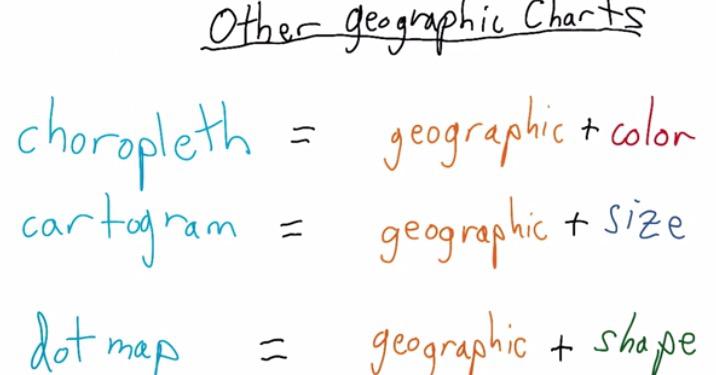 Other geographic Charts
choropleth = geographic + color
cartogram = geographic + size
dot map = geographic + shape